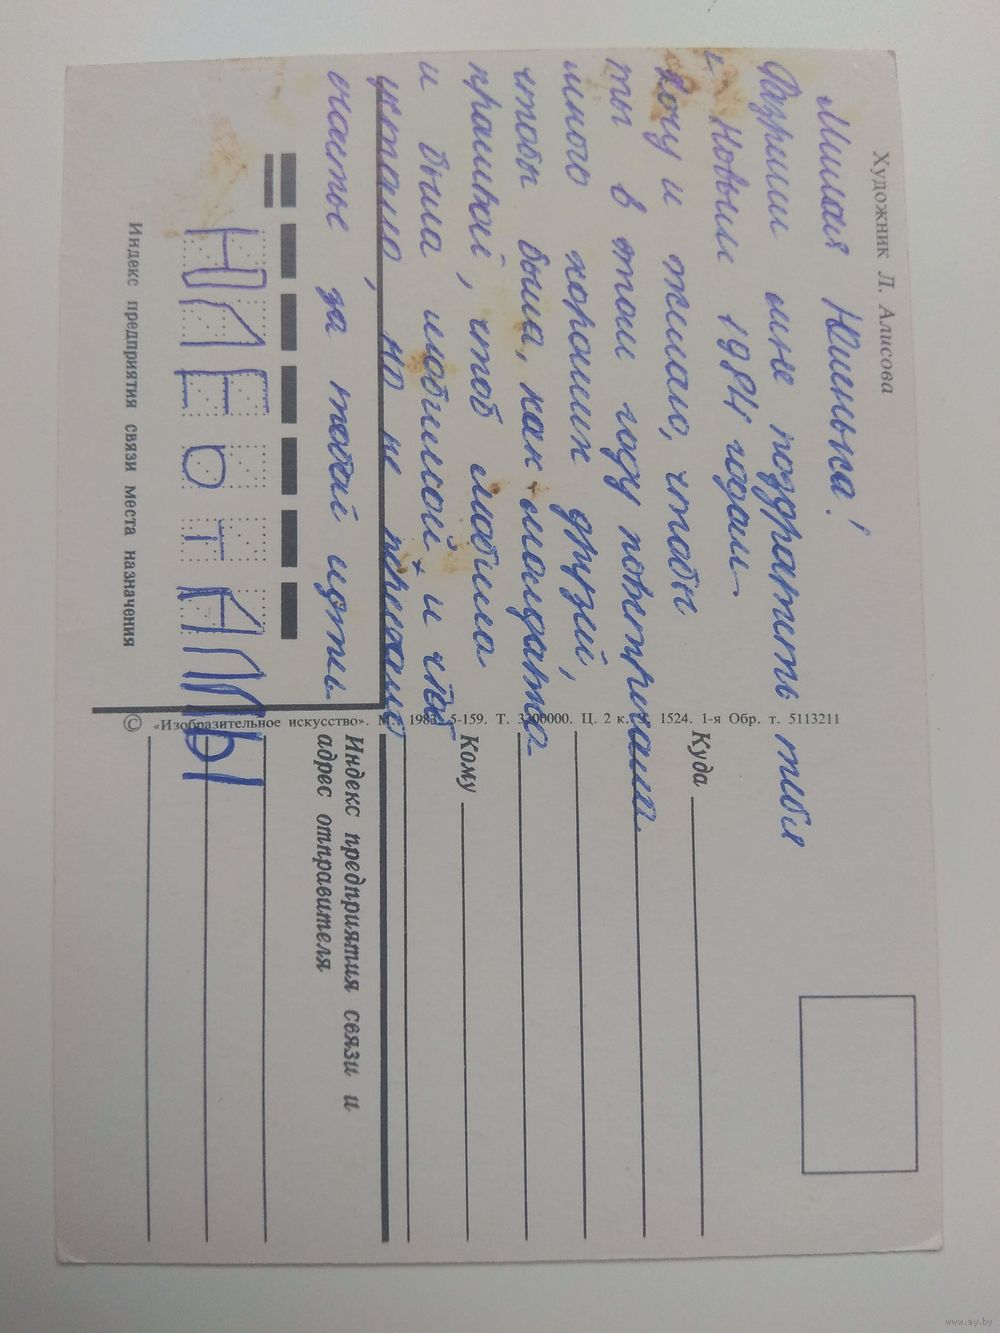 Художник Л. Алисова
Милая Юленька!
Разреши мне поздравить тебя
с Новым 1984 годом
Хочу и желаю, чтобы
ты в этом году повстречала
много хороших друзей,
чтобы была, как солдат
прямой, чтоб любила
и была любимой и чтоб
устало, но не
счастье за тобой идти.
Индекс предприятия связи места назначения
© «Изобразительное искусство». М., 1983. 5-159. Т. 3300000. Ц. 2 к. 1524. 1-я Обр. т. 5113211
Куда
Кому
Индекс предприятия связи и
адрес отправителя
www.ay.by